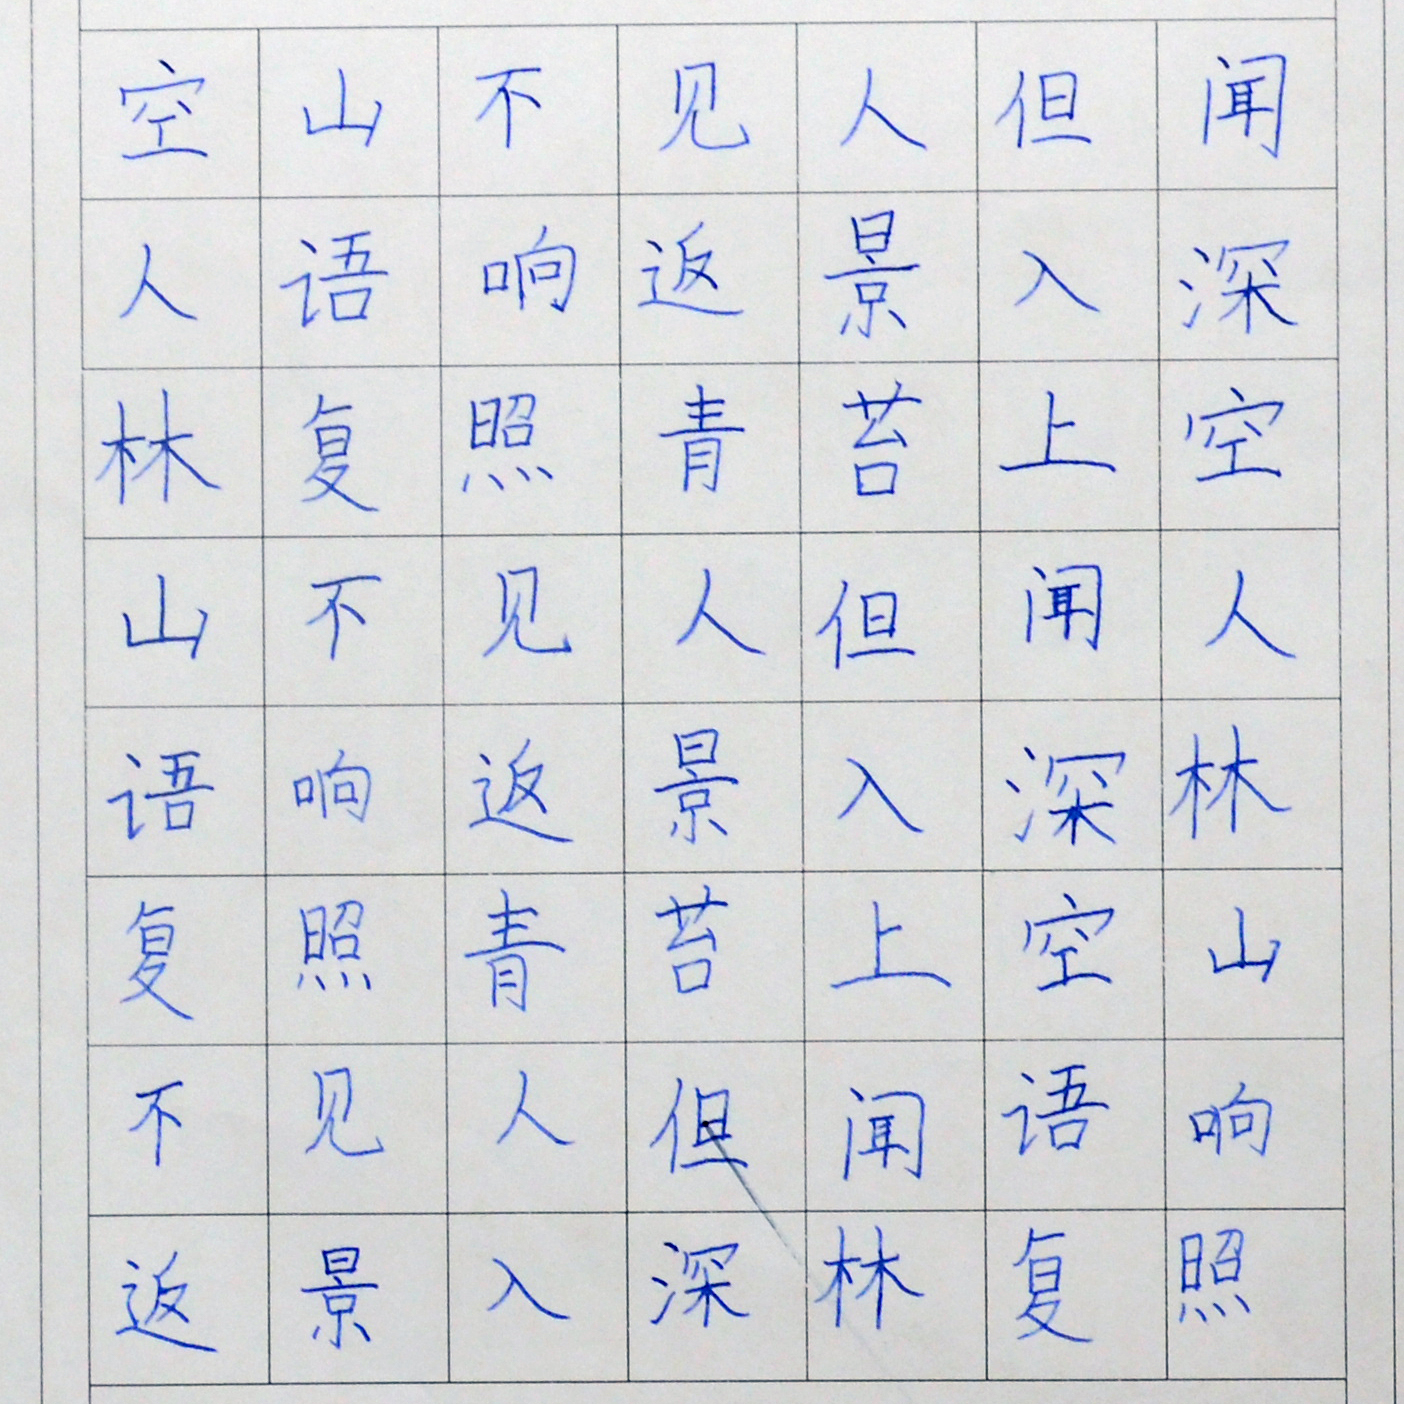 空山不见人但闻
人语响返景入深
林复照青苔上空
山不见人但闻人
语响返景入深林
复照青苔上空山
不见人但闻语响
返景入深林复照